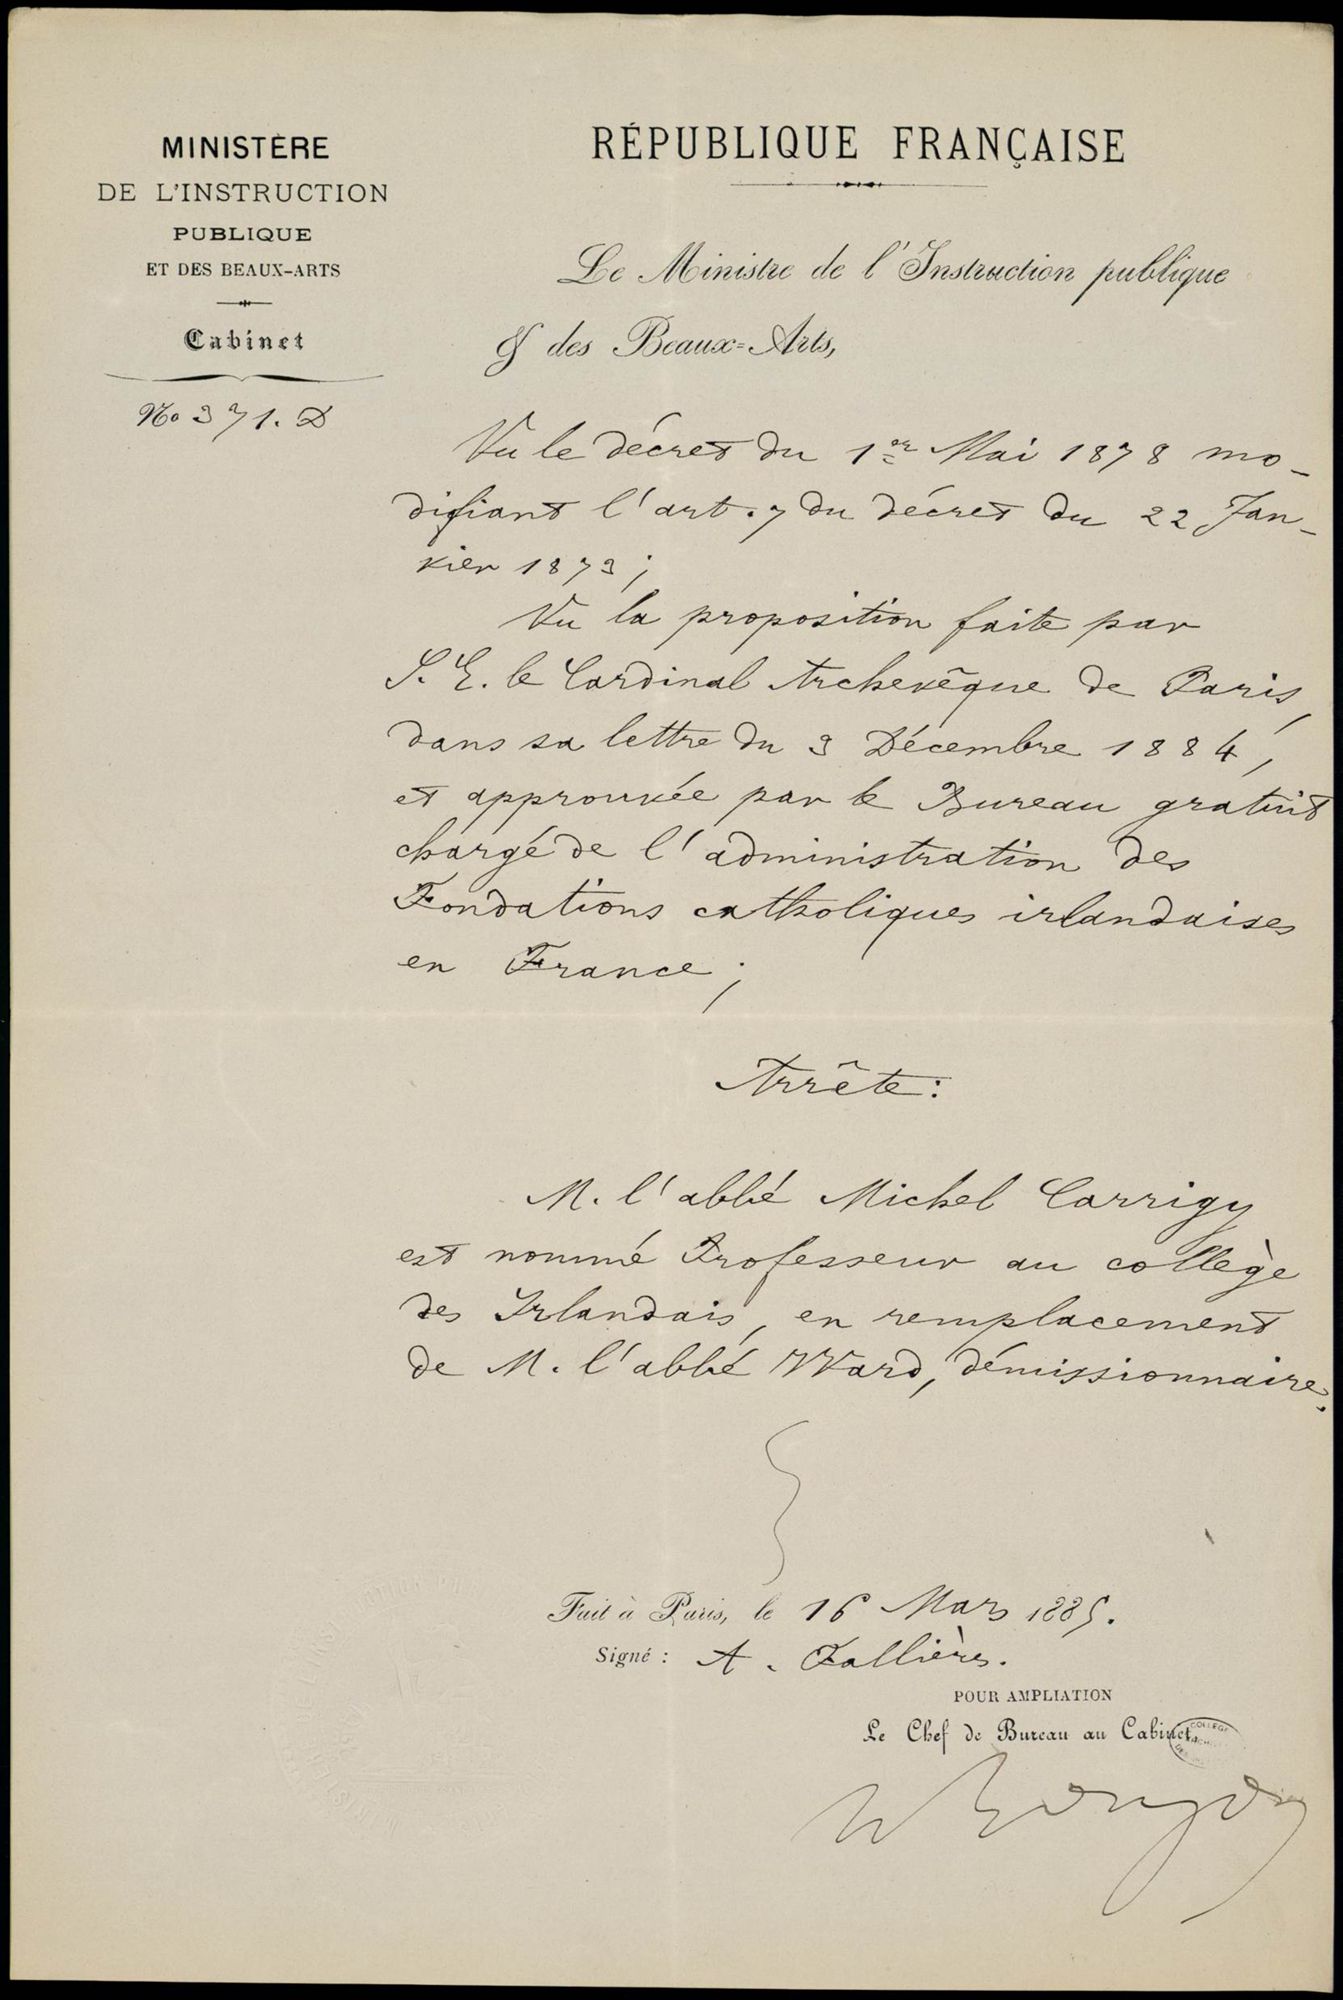 MINISTÈRE
DE L'INSTRUCTION
PUBLIQUE
ET DES BEAUX-ARTS
Cabinet
No 371. D
RÉPUBLIQUE FRANÇAISE
Le Ministre de l'Instruction publique
& des Beaux-Arts,
Vu le décret du 1er Mai 1878 mo-
difiant l'art. 7 du décret du 22 Jan-
vier 1873;
Vu la proposition faite par
S. E. le Cardinal Archevêque de Paris,
dans sa lettre du 3 Décembre 1884,
et approuvée par le Bureau gratuit
chargé de l'administration des
Fondations catholiques irlandaises
en France;
Arrête:
M. l'abbé Michel Carrigy
est nommé Professeur au collège
des Irlandais, en remplacement
de M. l'abbé Ward, démissionnaire.
Fait à Paris, le 16 Mars 1885.
Signé : A. Fallières.
POUR AMPLIATION
Le Chef de Bureau au Cabinet,
COLLEGE